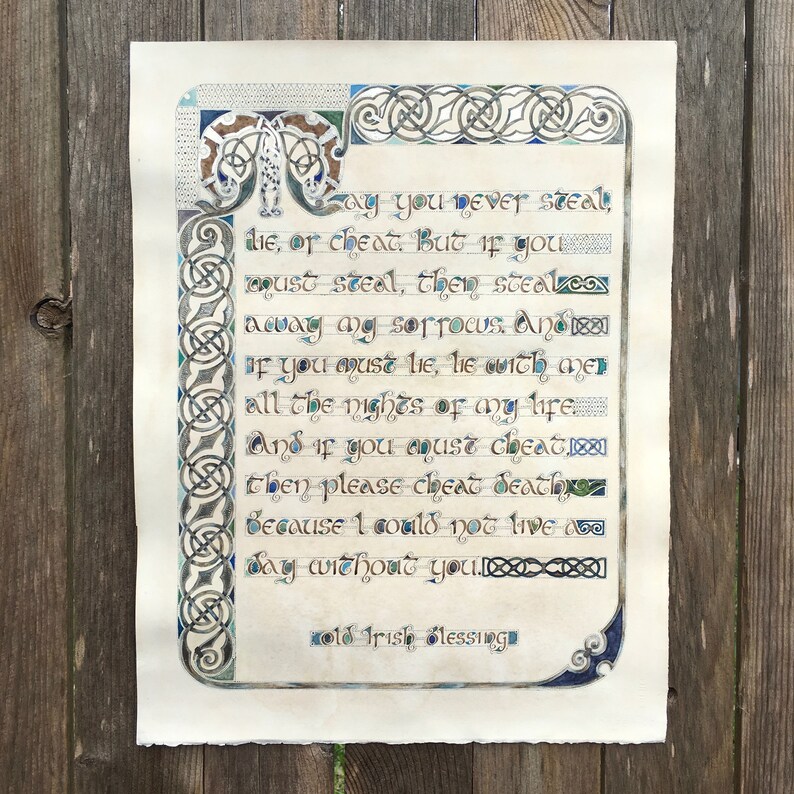 May you never steal,
lie, or cheat. But if you
must steal, then steal
away my sorrows. And
if you must lie, lie with me
all the nights of my life.
And if you must cheat,
then please cheat death,
because I could not live a
day without you.
Old Irish Blessing